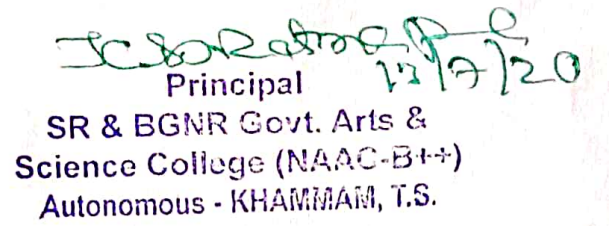 17/7/20
Principal
SR & BGNR Govt. Arts &
Science College (NAAC-B++)
Autonomous - KHAMMAM, T.S.